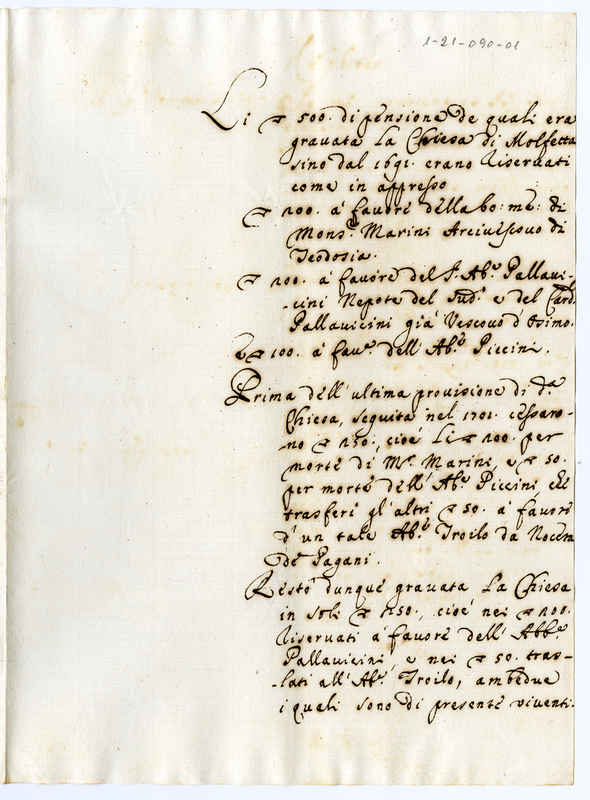 1-21-090-01
Li ▽ 500. di pensione de quali era
gravata La Chiesa di Molfetta
sino dal 1691. erano Riservati
come in appresso
▽ 200. à favore della bo: me: di
Mons.r Marini Arcivescovo di
Teodosia.
▽ 200. à favore del S.r Ab.e Pallavi-
-cini Nepote del Sud.o e del Card.
Pallavicini già Vescovo d'Osimo.
e ▽ 100. à fav.e dell'Ab.e Piccini.
Prima dell'ultima provisione di d.a
Chiesa, seguita nel 1701. cessaro-
-no ▽ 250., cioè Li ▽ 200. per
morte di M.r Marini, e ▽ 50.
per morte dell'Ab.e Piccini, che
trasferì gl'altri ▽ 50. à favore
d'un tale Ab.e Troilo da Nocera
de' Pagani.
Restò dunque gravata La Chiesa
in soli ▽ 250., cioè nei ▽ 200.
Riservati à favore dell'Abb.e
Pallavicini, e nei ▽ 50. tras-
-lati all'Ab.e Troilo, ambedue
i quali sono di presente viventi.